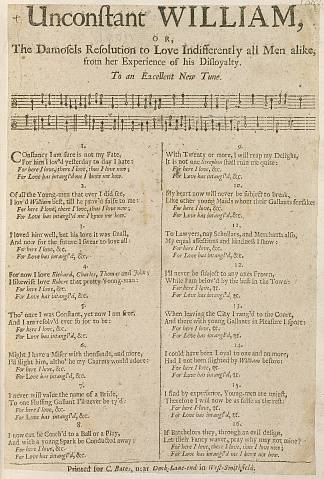 Unconstant WILLIAM,
OR,
The Damosels Resolution to Love Indifferently all Men alike,
from her Experience of his Disloyalty.
To an Excellent New Tune.
1.
Constancy I am sure is not my Fate,
For him I lov'd yesterday to day I hate:
For here I love, there I love, thus I love now;
For Love has intangl'd me I know not how.
2.
Of all the Young-men that ever I did see,
I lov'd William best, till he prov'd false to me:
For here I love, there I love, thus I love now;
For Love has intangl'd me I know not how.
3.
I loved him well, but his love it was small,
And now for the future I swear to love all:
For here I love, &c.
For Love has intangl'd, &c.
4.
For now I love Richard, Charles, Thomas and John;
I likewise love Robert that pretty Young-man:
For here I love, &c.
For Love has intangl'd, &c.
5.
Tho' once I was Constant, yet now I am free,
And I am resolv'd ever so for to be:
For here I love, &c.
For Love has intangl'd, &c.
6.
Might I have a Miser with thousands, and more,
I'd slight him, altho' he my Carcass would adore:
For here I love, &c.
For Love has intangl'd, &c.
7.
I never will value the name of a Bride,
To one Huffing Gallant I'll never be ty'd:
For here I love, &c.
For Love has intangl'd, &c.
8.
I now can be Coach'd to a Ball or a Play,
And with a young Spark be Conducted away:
For here I love, &c.
For Love has intangl'd, &c.
9.
With Twenty or more, I will reap my Delight,
It is not one Strephon shall ruin me quite:
For here I love, &c.
For Love has intangl'd, &c.
10.
My heart now will never be subject to break,
Like other young Maids whom their Gallants forsake:
For here I love, &c.
For Love has intangl'd, &c.
11.
To Lawyers, nay Schollars, and Merchants also,
My equal affections and kindness I show:
For here I love, &c.
For Love has intangl'd, &c.
12.
I'll never be subject to any ones Frown,
While I'am belov'd by the lads in the Town:
For here I love, &c.
For Love has intangl'd, &c.
13.
When leaving the City I rang'd to the Court,
And there with young Gallants in Pleasure I sport:
For here I love, &c.
For Love has intangl'd, &c.
14.
I could have been Loyal to one and no more,
Had I not been slighted by William before:
For here I love, &c.
For Love has intangl'd, &c.
15.
I find by experience, Young-men are unjust,
Therefore I will now be as false as the rest:
For here I love, &c.
For Love has intangl'd, &c.
16.
If Batchelors they, through an evil design,
Let their Fancy waver, pray why may not mine?
For here I love, there I love, thus I love now;
For Love has intangl'd me I know not how.
Printed for C. Bates, near Duck-Lane-end in West-Smithfield.